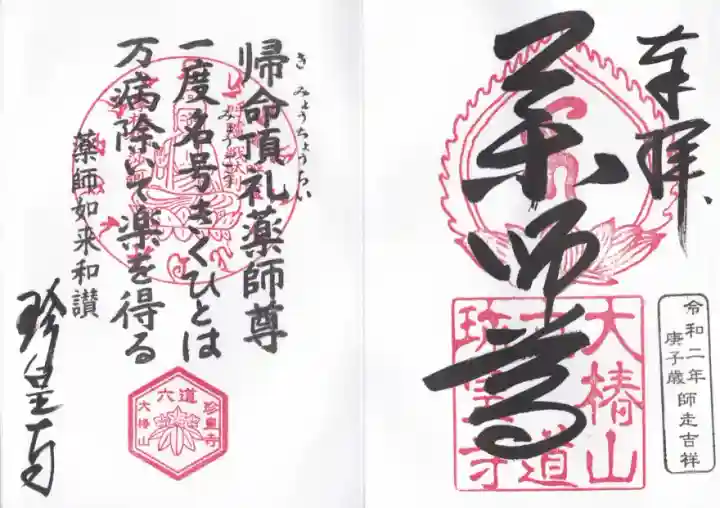 奉拝
薬師尊
大椿山
六道
珍皇寺
令和二年
庚子歳師走吉祥
帰命頂礼薬師尊
きみょうちょうらい
一度名号きくひとは
みょうごう
万病除いて楽を得る
薬師如来和讃
珍皇寺
六道
珍皇寺
大椿山